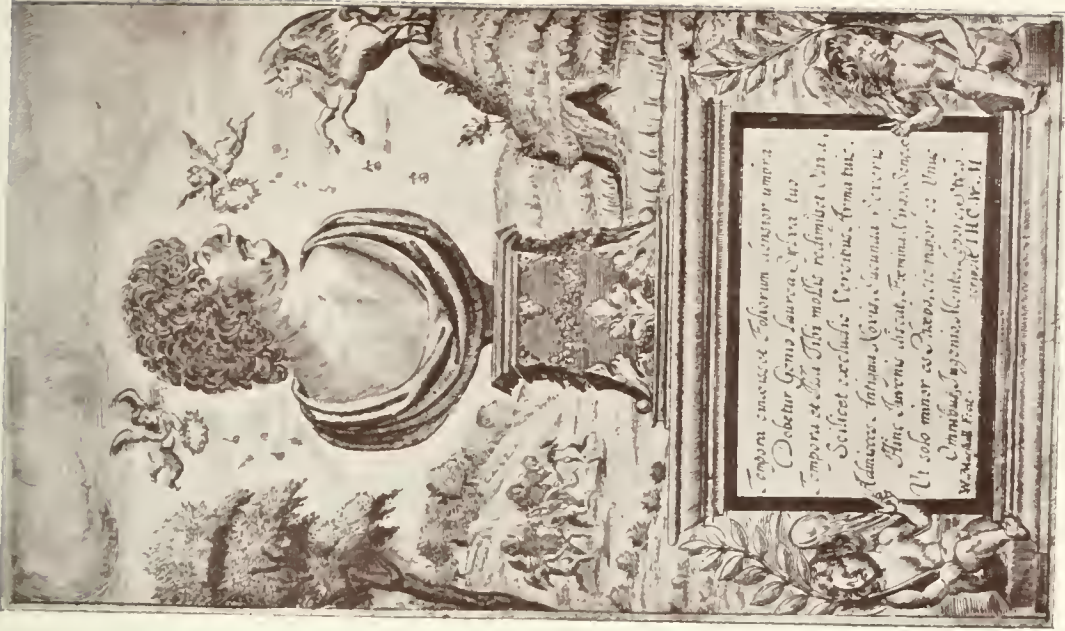 Tempora cinxisset Foliorum densior umbra
Debetur Genio Laurea Sylva tuo
Tempora et Illa Tibi mollis redimisset Oliva
Scilicet excludis Versibus Arma tuis.
Admisces Antiqua Novis, Iocunda Severis
Hinc Iuvenis discat, Fæmina, Virgo, Senex
Ut solo minor es Phœbo, sic major es Unus
Omnibus, Ingenio, Mente, Lepore, Stylo.
W. Marshall Fecit. scripsit I.H.C. W.M.